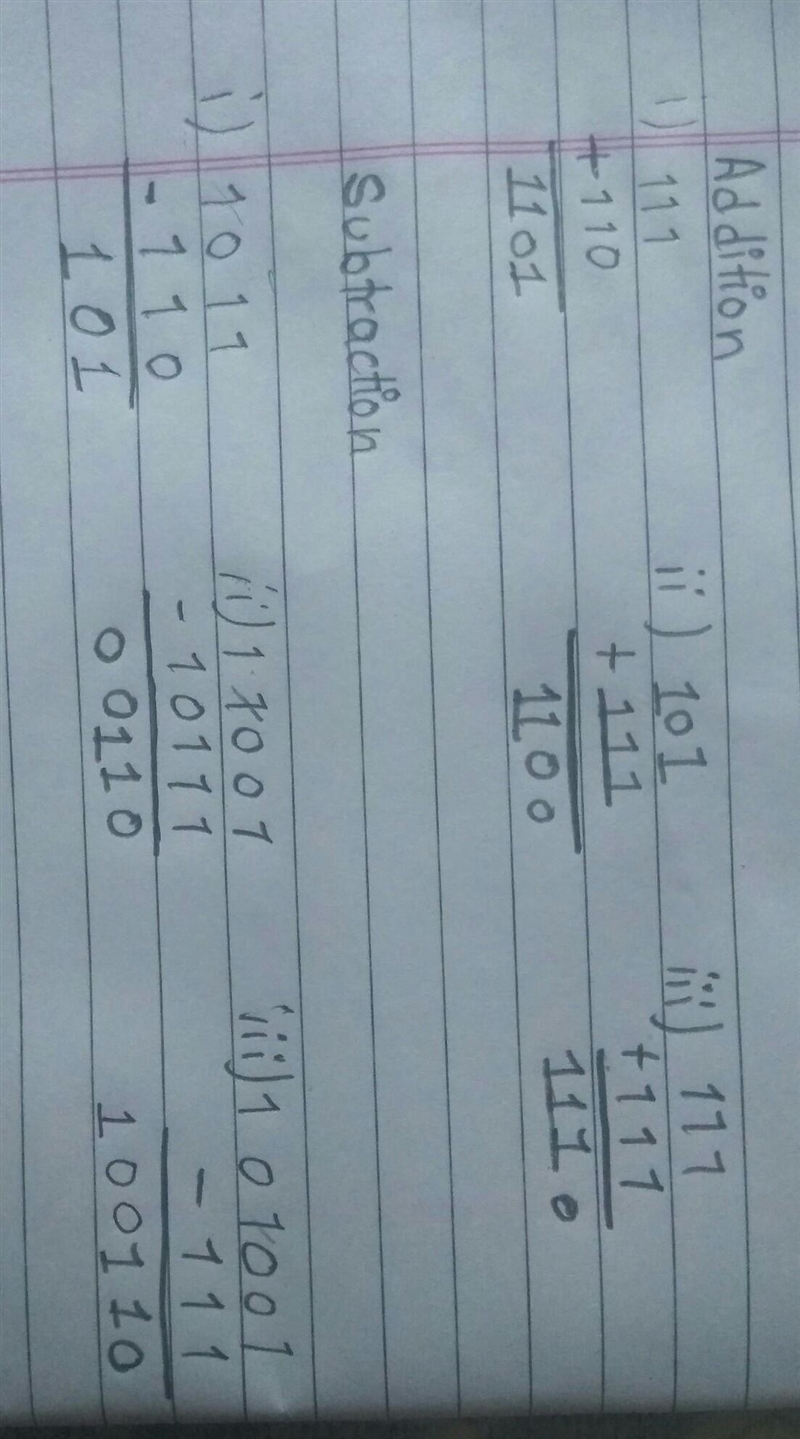 Addition
i) 111 ii) 101 iii) 111
+110 +111 +111
1101 1100 1110
Subtraction
i) 1011 ii) 11001 iii) 101001
- 110 - 10111 - 111
101 00110 100110